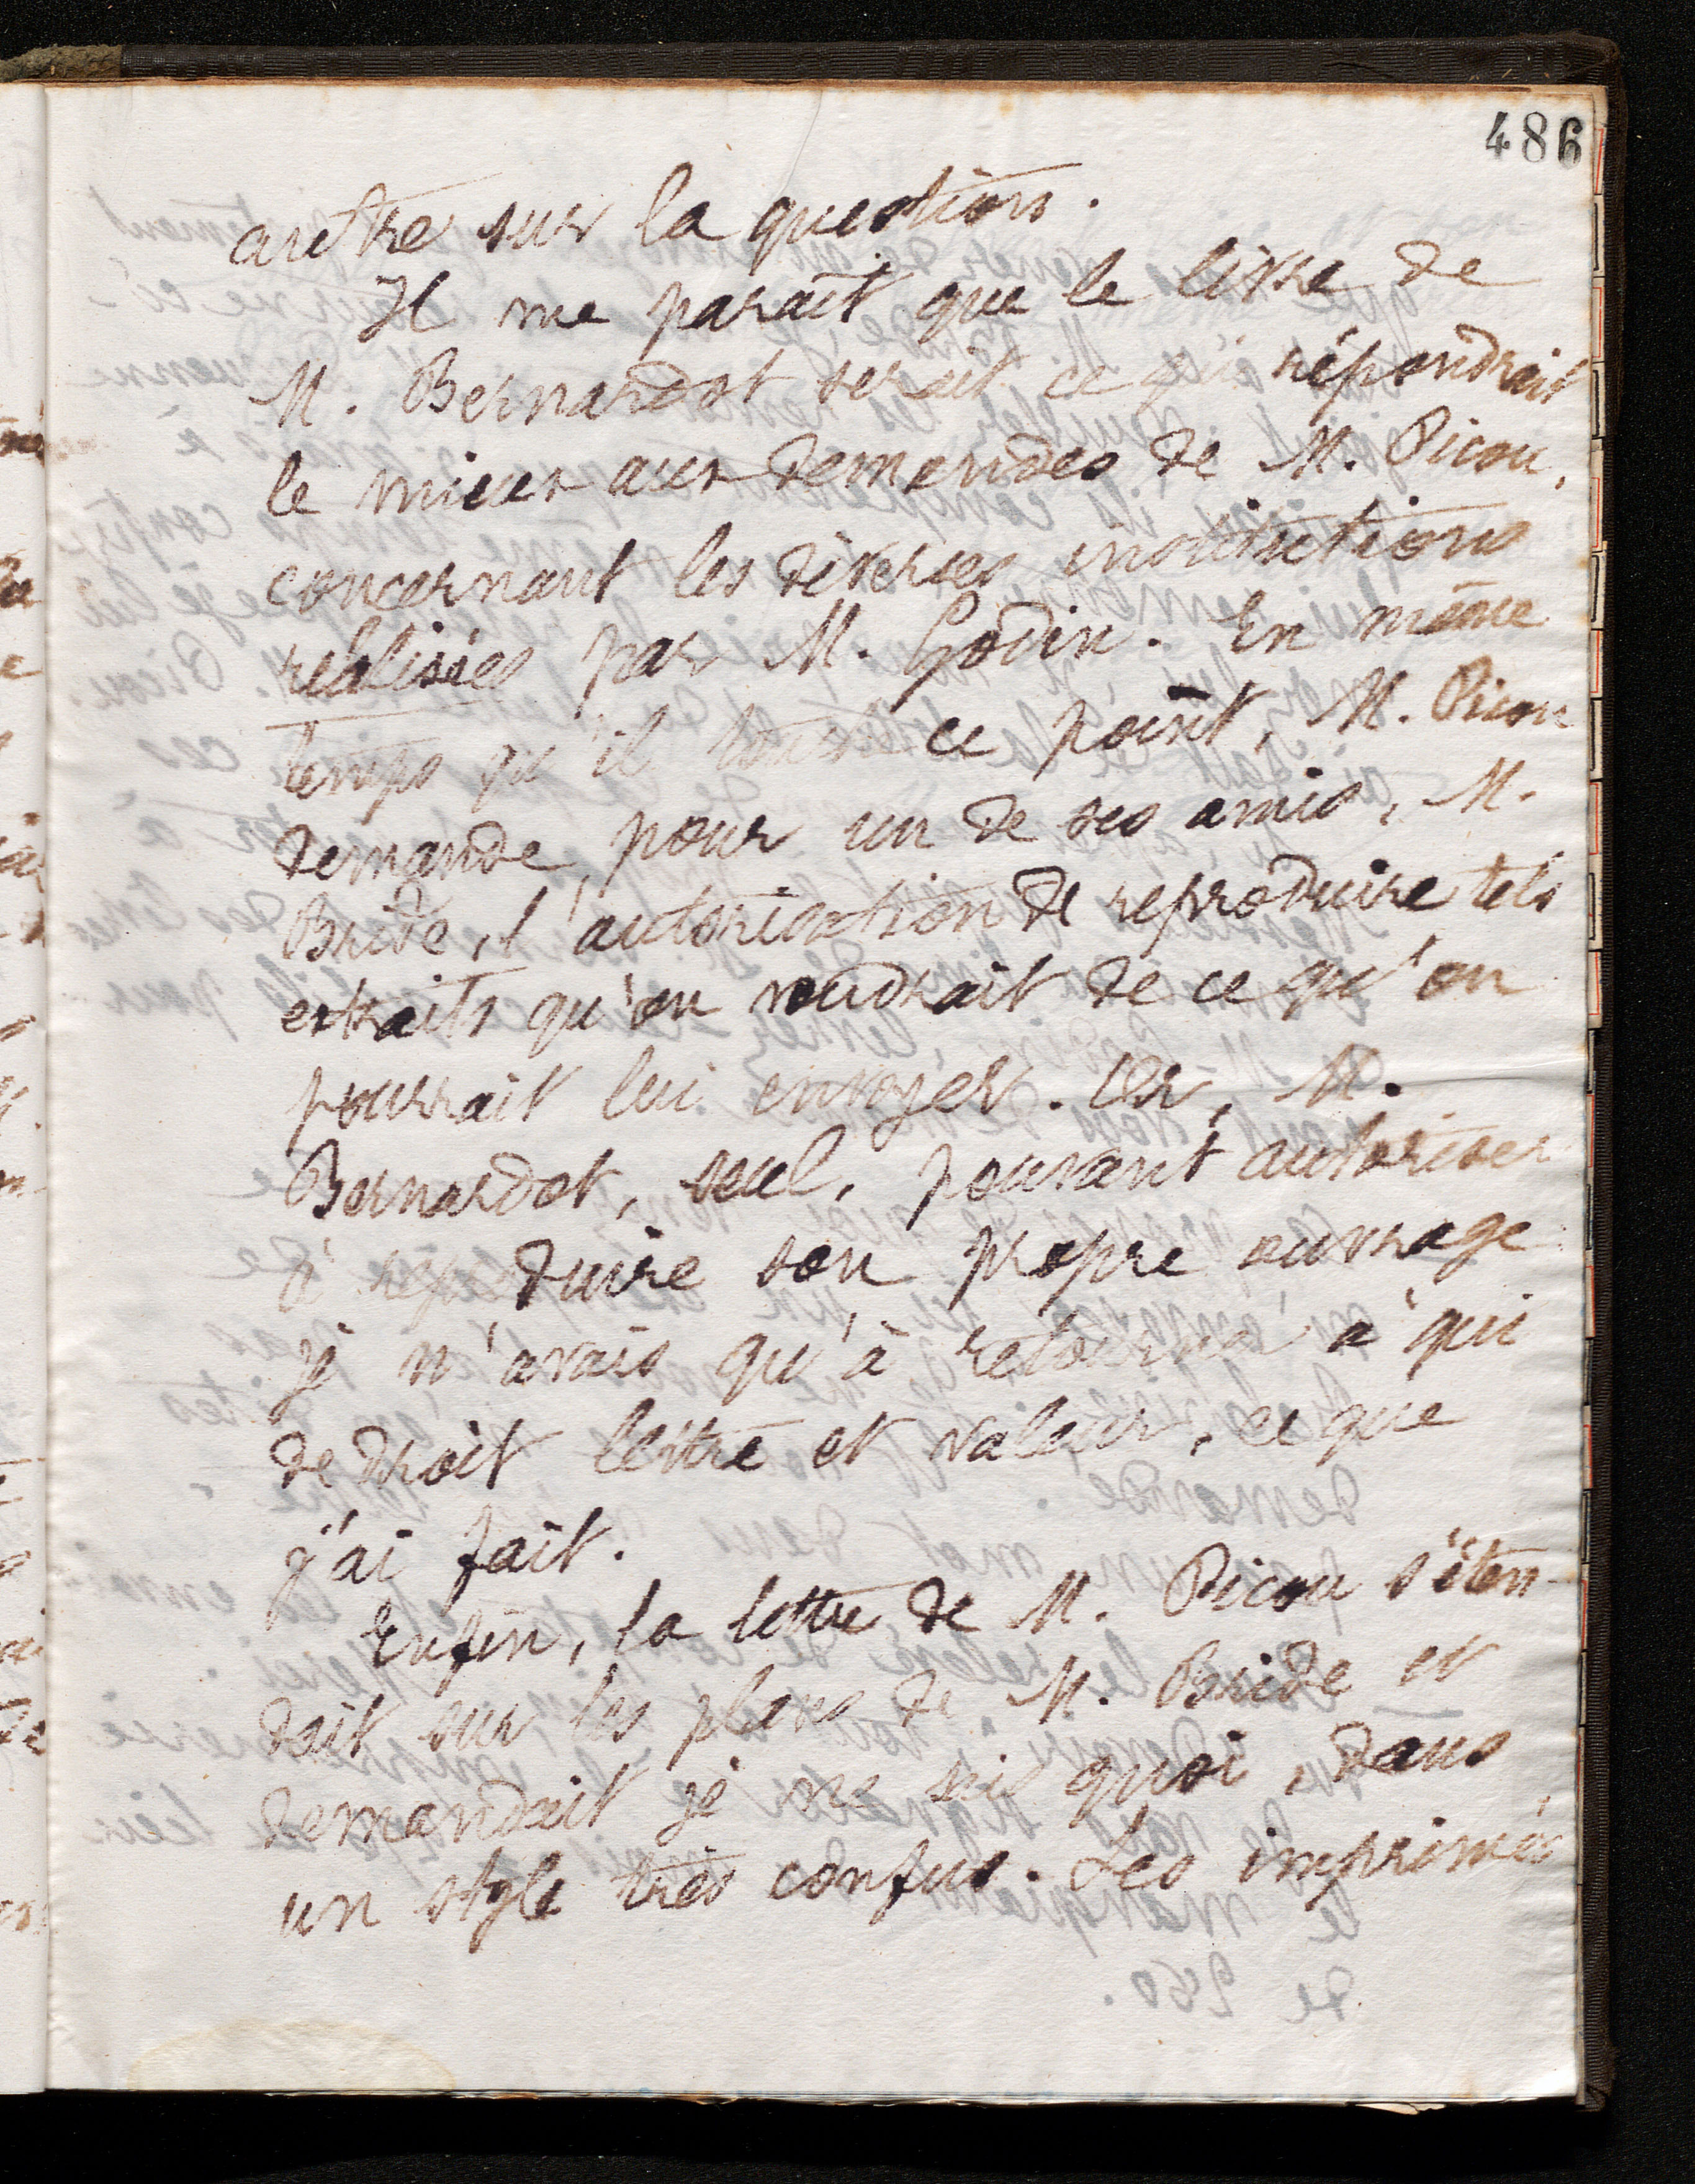 486
autre sur la question.
Il me parait que le livre de
M. Bernardot serait ce qui répondrait
le mieux aux demandes de M. Picou,
concernant les diverses institutions
réalisées par M. Godin. En même
temps qu'il touche ce point, M. Picou
demande, pour un de ses amis, M.
Bride, l'autorisation de reproduire tels
extraits qu'on voudrait de ce qu'on
pourrait lui envoyer. Or, M.
Bernardot, seul, pouvant autoriser
à reproduire son propre ouvrage
je n'avais qu'à retourner à qui
de droit lettre et valeur, ce que
j'ai fait.
Enfin, la lettre de M. Picou s'éten-
dait sur les plans de M. Bride et
demandait je ne sais quoi, dans
un style très confus. Les imprimés